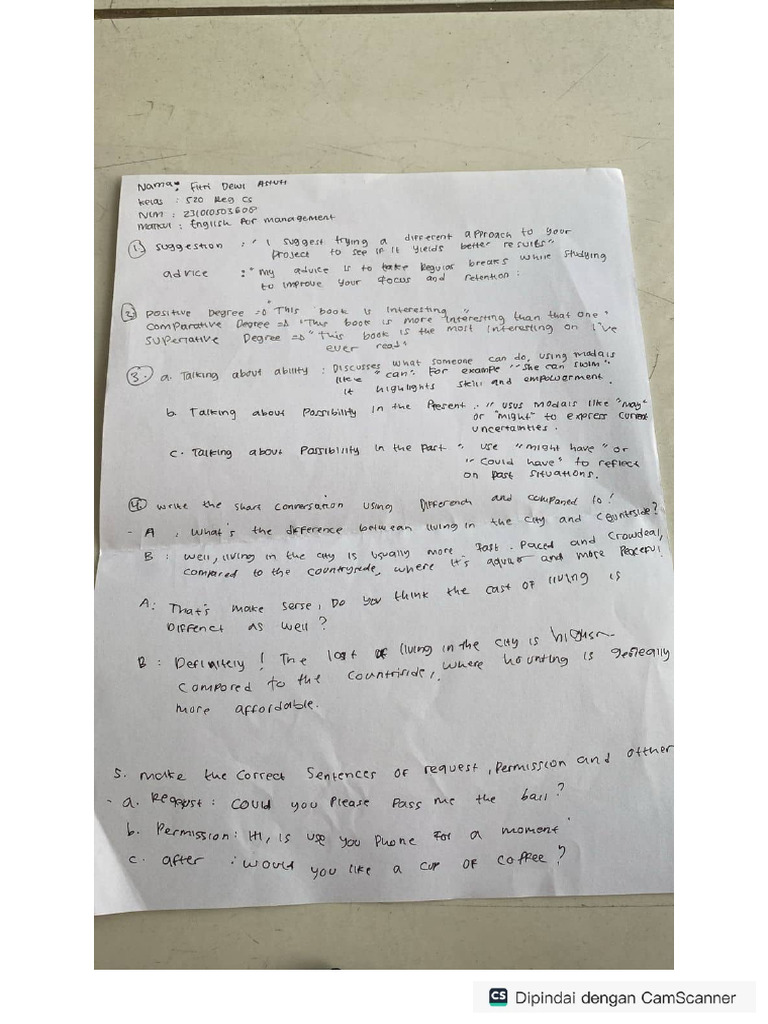 Nama : Fitri Dewi Astuti
Kelas : S20 Reg CS
NIM : 231010503608
Matkul : English For management
1. Suggestion : " I suggest trying a different approach to your
Project to see if it yields better results"
advice : "My advice is to take Regular breaks while studying
to improve your focus and retention :
2. Positive Degree => "This book is Interesting"
Comparative Degree => "This book is more Interesting than that one"
Superlative Degree => "This book is the most Interesting on I've
ever read"
3. a. Talking about ability : Discusses what someone can do, using modals
like "can". For example "She can swim"
It highlights skill and empowerment.
b. Talking about Possibility In the Present : " usus modals like "may"
or "might" to express current
uncertainties.
c. Talking about Possibility In the Past " use "might have" or
"could have" to reflect
on past situations.
4. write the share conversation using Difference and compared to!
- A : What's the difference between living in the city and countryside?
B : well, living in the city is usually more fast-paced and crowded,
compared to the countryside, where it's quiet and more peaceful
A : That's make sense, Do you think the cost of living is
Diffenct as well?
B : Definitely! The cost of living in the city is higher
compared to the countriside, where hounting is generally
more affordable.
5. make the correct sentences of request, Permission and other
- a. Request : Could you Please Pass me the ball?
b. Permission : Hi, is use you Phone For a moment
c. after : would you like a cup of coffee?
CS Dipindai dengan CamScanner